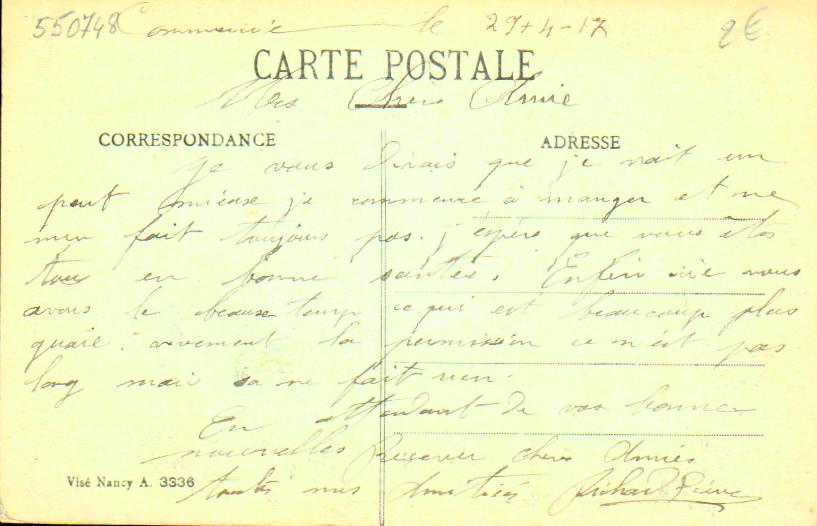 550748 Commercie le 29+4-17 2€
CARTE POSTALE
Mes Chers Amie
CORRESPONDANCE ADRESSE
Je vous dirais que je vait un
peut mieuse je commence à manger et ne
men fait toujours pas. j'éspére que vous êtes
tous en bonne santés. Enfin ici nous
avons le beause temp ce qui est beaucoup plus
quaie. vivement la permission ce n'est pas
long mais sa ne fait rien.
En attendant de vos bonnes
nouvelles Recever chers Amies
toutes mes Amitiés Richard Pierre
Visé Nancy A. 3336